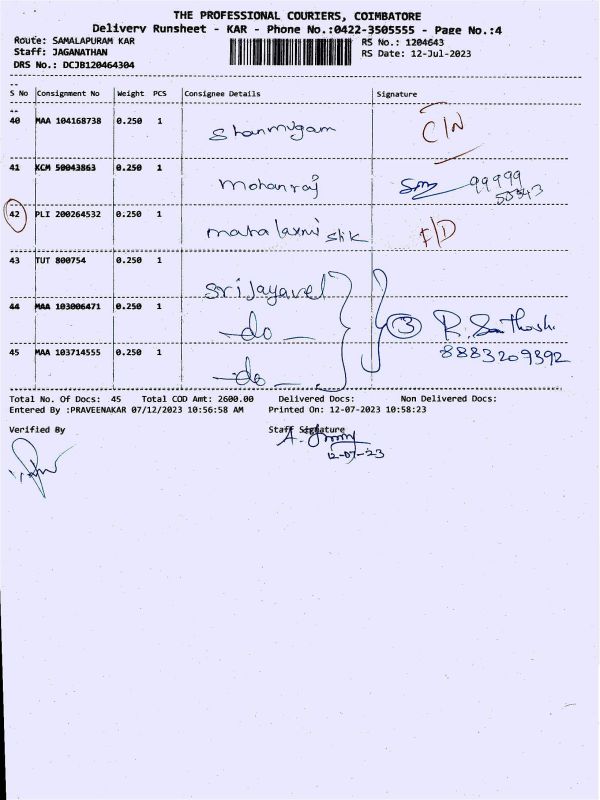 THE PROFESSIONAL COURIERS, COIMBATORE
Delivery Runsheet - KAR - Phone No.:0422-3505555 - Page No.:4
Route: SAMALAPURAM KAR
RS No.: 1204643
Staff: JAGANATHAN
RS Date: 12-Jul-2023
DRS No.: DCJB120464304
S No Consignment No Weight PCS Consignee Details Signature
40 MAA 104168738 0.250 1 Shanmugam C/N
41 KCM 50043863 0.250 1 Mohanraj 99999
42 PLI 200264532 0.250 1 mahalaxmi F/D
43 TUT 800754 0.250 1 Srijayavel
44 MAA 103006471 0.250 1 -do- 3 R. Santhosh
8883209392
45 MAA 103714555 0.250 1 -do-
Total No. Of Docs: 45 Total COD Amt: 2600.00 Delivered Docs: Non Delivered Docs:
Entered By :PRAVEENAKAR 07/12/2023 10:56:58 AM Printed On: 12-07-2023 10:58:23
Verified By Staff Signature
12-07-23